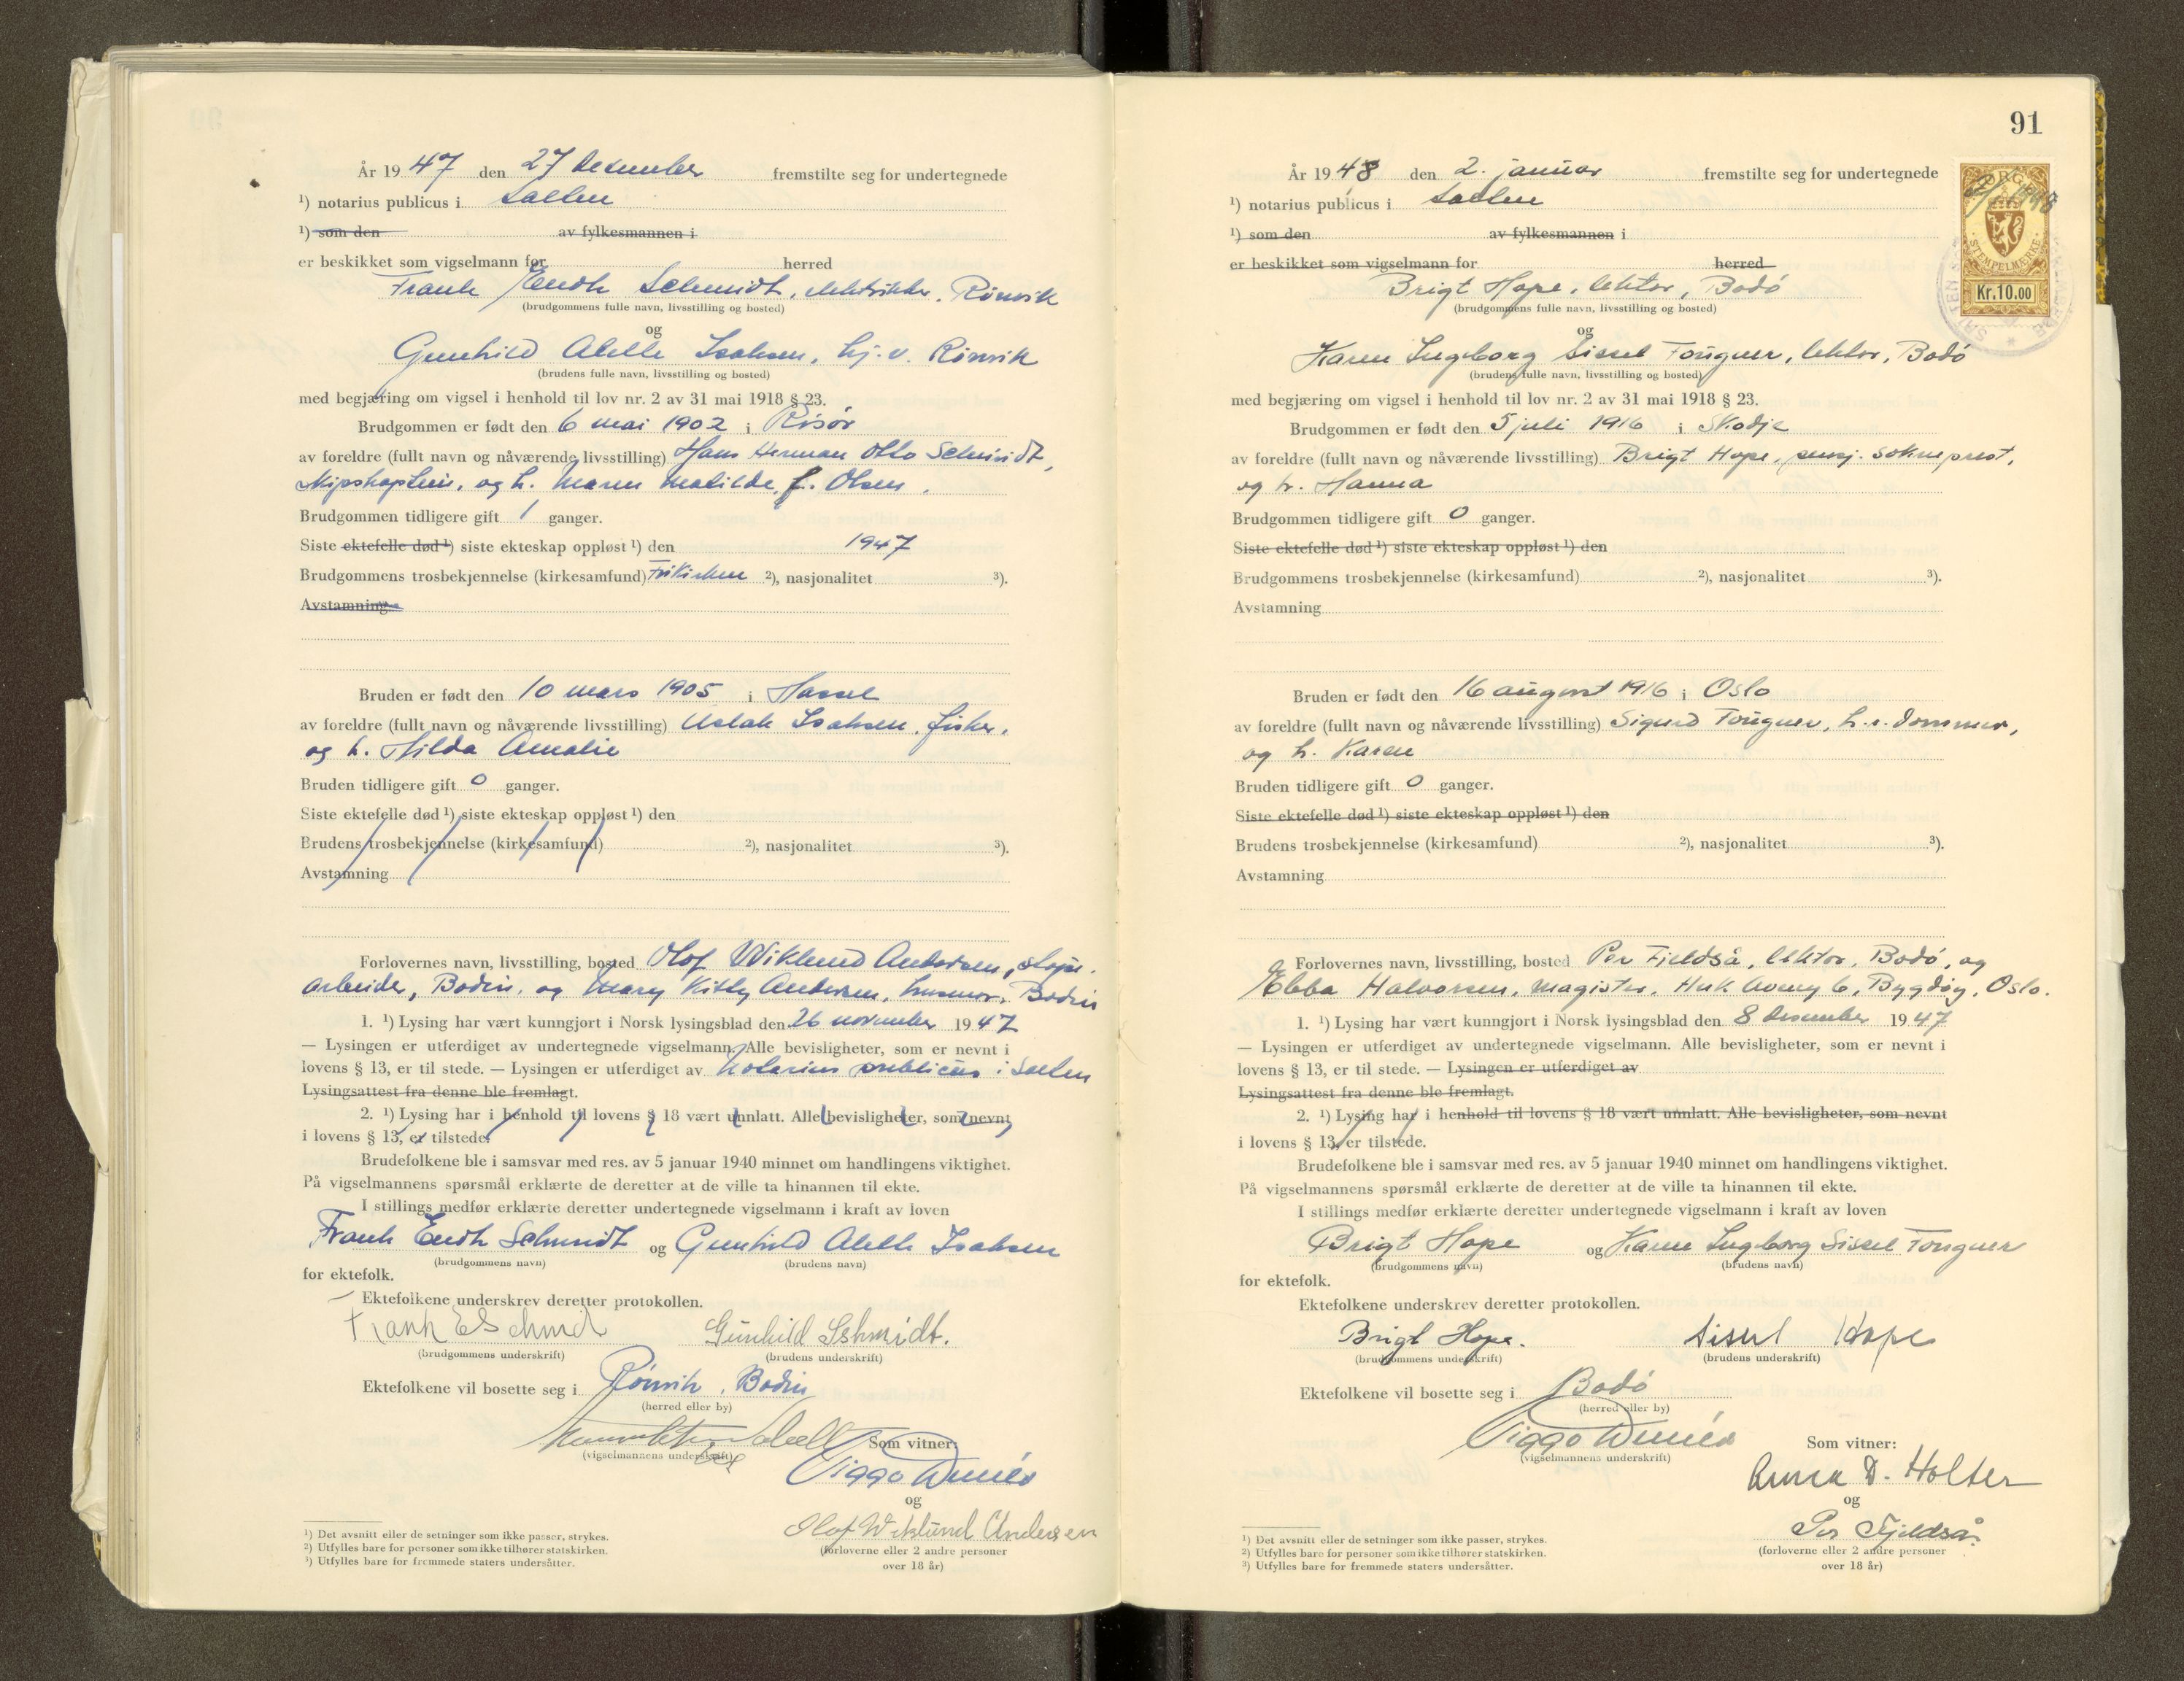 År 1947 den 27 desember fremstilte seg for undertegnede
¹) notarius publicus i Salten
¹) som den av fylkesmannen i
er beskikket som vigselmann for herred
Frank Schmidt, elektriker, Rønvik
(brudgommens fulle navn, livsstilling og bosted)
og
Gunhild Isaksen, hj.v. Rønvik
(brudens fulle navn, livsstilling og bosted)
med begjæring om vigsel i henhold til lov nr. 2 av 31 mai 1918 § 23.
Brudgommen er født den 6 mai 1902 i Risør
av foreldre (fullt navn og nåværende livsstilling) Hans Herman Otto Schmidt,
skipskaptein, og h. Maren Matilde, f. Olsen.
Brudgommen tidligere gift 1 ganger.
Siste ektefelle død ¹) siste ekteskap oppløst ¹) den 1947
Brudgommens trosbekjennelse (kirkesamfund) Frikirken ²), nasjonalitet ³).
Avstamning
Bruden er født den 10 mars 1905 i Hassel
av foreldre (fullt navn og nåværende livsstilling) Aslak Isaksen, fisker,
og h. Hilda Amalie
Bruden tidligere gift 0 ganger.
Siste ektefelle død ¹) siste ekteskap oppløst ¹) den
Brudens trosbekjennelse (kirkesamfund) ²), nasjonalitet ³).
Avstamning
Forlovernes navn, livsstilling, bosted Olof Wiklund Andersen,
arbeider, Bodin, og Mary Kitty Andersen, husmor, Bodin
1. ¹) Lysing har vært kunngjort i Norsk lysingsblad den 26 november 1947
— Lysingen er utferdiget av undertegnede vigselmann. Alle bevisligheter, som er nevnt i
lovens § 13, er til stede. — Lysingen er utferdiget av Notarius publicus i Salten
Lysingsattest fra denne ble fremlagt.
2. ¹) Lysing har i henhold til lovens § 18 vært unnlatt. Alle bevisligheter, som nevnt
i lovens § 13, er tilstede.
Brudefolkene ble i samsvar med res. av 5 januar 1940 minnet om handlingens viktighet.
På vigselmannens spørsmål erklærte de deretter at de ville ta hinannen til ekte.
I stillings medfør erklærte deretter undertegnede vigselmann i kraft av loven
Frank Schmidt og Gunhild Isaksen
(brudgommens navn) (brudens navn)
for ektefolk.
Ektefolkene underskrev deretter protokollen.
Frank E Schmidt Gunhild Schmidt.
(brudgommens underskrift) (brudens underskrift)
Ektefolkene vil bosette seg i Rønvik, Bodin
(herred eller by)
Som vitner:
(vigselmannens underskrift)
Viggo
og
Olof Wiklund Andersen
(forloverne eller 2 andre personer
over 18 år)
¹) Det avsnitt eller de setninger som ikke passer, strykes.
²) Utfylles bare for personer som ikke tilhører statskirken.
³) Utfylles bare for fremmede staters undersåtter.
91
År 1948 den 2. januar fremstilte seg for undertegnede
¹) notarius publicus i Salten
¹) som den av fylkesmannen i
er beskikket som vigselmann for herred
NORGE
STEMPELMERKE
Kr.10.00
Brigt Hope, lektor, Bodø
(brudgommens fulle navn, livsstilling og bosted)
og
Karen Ingeborg Sissel Fougner, lektor, Bodø
(brudens fulle navn, livsstilling og bosted)
med begjæring om vigsel i henhold til lov nr. 2 av 31 mai 1918 § 23.
Brudgommen er født den 5 juli 1916 i Skodje
av foreldre (fullt navn og nåværende livsstilling) Brigt Hope, pensj. sokneprest,
og h. Hanna
Brudgommen tidligere gift 0 ganger.
Siste ektefelle død ¹) siste ekteskap oppløst ¹) den
Brudgommens trosbekjennelse (kirkesamfund) ²), nasjonalitet ³).
Avstamning
Bruden er født den 16 august 1916 i Oslo
av foreldre (fullt navn og nåværende livsstilling) Sigurd Fougner, h.r.dommer,
og h. Karen
Bruden tidligere gift 0 ganger.
Siste ektefelle død ¹) siste ekteskap oppløst ¹) den
Brudens trosbekjennelse (kirkesamfund) ²), nasjonalitet ³).
Avstamning
Forlovernes navn, livsstilling, bosted Per Fjeldså, lektor, Bodø, og
Ebba Halvorsen, magister, Huk Aveny 6, Bygdøy, Oslo.
1. ¹) Lysing har vært kunngjort i Norsk lysingsblad den 8 desember 1947
— Lysingen er utferdiget av undertegnede vigselmann. Alle bevisligheter, som er nevnt i
lovens § 13, er til stede. — Lysingen er utferdiget av
Lysingsattest fra denne ble fremlagt.
2. ¹) Lysing har i henhold til lovens § 18 vært unnlatt. Alle bevisligheter, som nevnt
i lovens § 13, er tilstede.
Brudefolkene ble i samsvar med res. av 5 januar 1940 minnet om handlingens viktighet.
På vigselmannens spørsmål erklærte de deretter at de ville ta hinannen til ekte.
I stillings medfør erklærte deretter undertegnede vigselmann i kraft av loven
Brigt Hope og Karen Ingeborg Sissel Fougner
(brudgommens navn) (brudens navn)
for ektefolk.
Ektefolkene underskrev deretter protokollen.
Brigt Hope. Sissel Hope
(brudgommens underskrift) (brudens underskrift)
Ektefolkene vil bosette seg i Bodø
(herred eller by)
Viggo
(vigselmannens underskrift)
Som vitner:
Anna D. Holter
og
Per Fjeldså.
(forloverne eller 2 andre personer
over 18 år)
¹) Det avsnitt eller de setninger som ikke passer, strykes.
²) Utfylles bare for personer som ikke tilhører statskirken.
³) Utfylles bare for fremmede staters undersåtter.